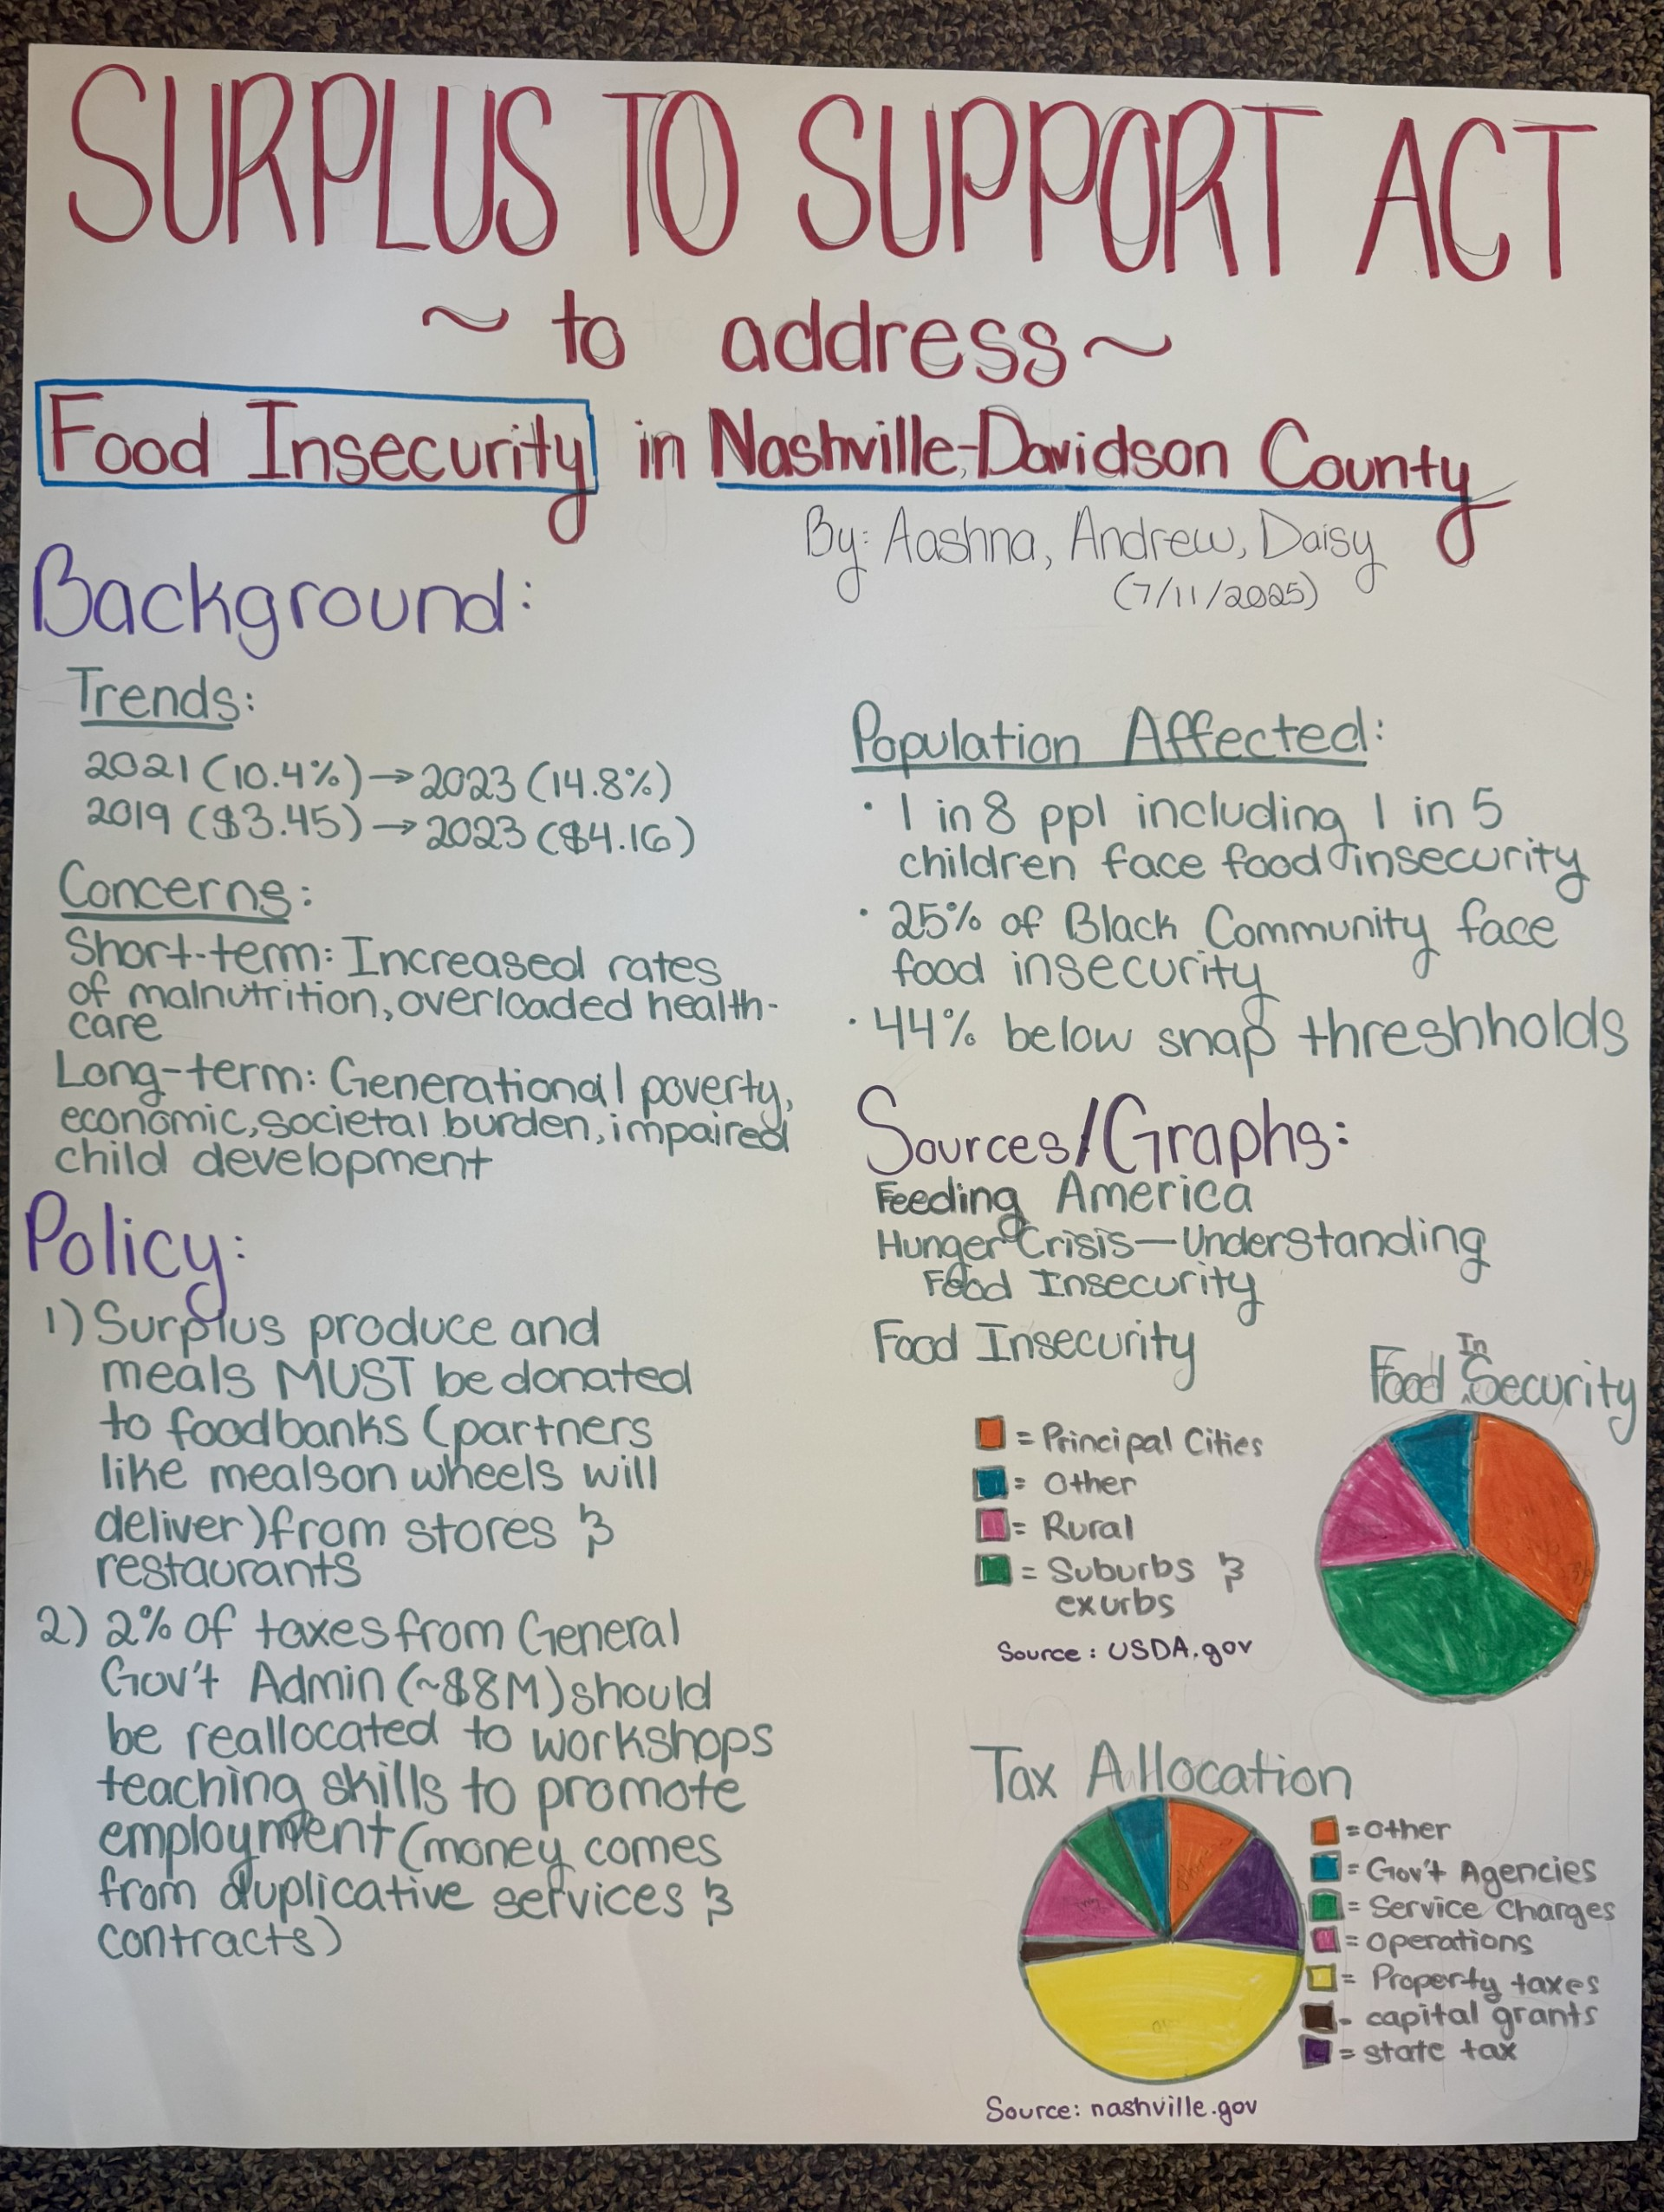 SURPLUS TO SUPPORT ACT
~ to address ~
Food Insecurity in Nashville-Davidson County
By: Aashna, Andrew, Daisy
(7/11/2025)
Background:
Trends:
2021 (10.4%) → 2023 (14.8%)
2019 ($3.45) → 2023 ($4.16)
Concerns:
Short-term: Increased rates
of malnutrition, overloaded health-
care
Long-term: Generational poverty,
economic, societal burden, impaired
child development
Policy:
1) Surplus produce and
meals MUST be donated
to foodbanks (partners
like mealson wheels will
deliver) from stores &
restaurants
2) 2% of taxes from General
Gov't Admin (~$8M) should
be reallocated to workshops
teaching skills to promote
employment (money comes
from duplicative services &
contracts)
Population Affected:
• 1 in 8 ppl including 1 in 5
children face food insecurity
• 25% of Black Community face
food insecurity
• 44% below snap threshholds
Sources/Graphs:
Feeding America
Hunger Crisis — Understanding
Food Insecurity
Food Insecurity
Food InSecurity
= Principal Cities
= Other
= Rural
= Suburbs &
exurbs
Source: USDA.gov
Tax Allocation
= Other
= Gov't Agencies
= Service Charges
= Operations
= Property taxes
= capital grants
= state tax
Source: nashville.gov